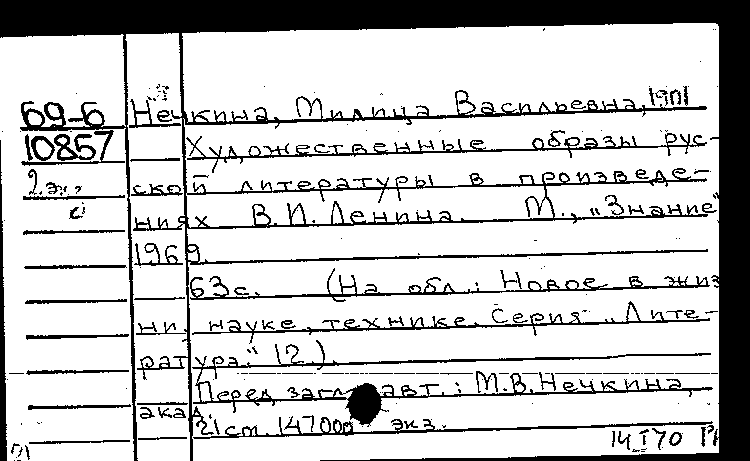 69-6 Нечкина, Милица Васильевна, 1901
10857 Художественные образы рус-
2 экз ской литературы в произведе-
ниях В.И. Ленина. М., "Знание"
1969.
63с. (На обл.: Новое в жиз
ни, науке, технике. Серия "Лите-
ратура." 12).
Перед загл. авт.: М.В. Нечкина,
акад.
21 cm. 147000 экз.
14 I 70